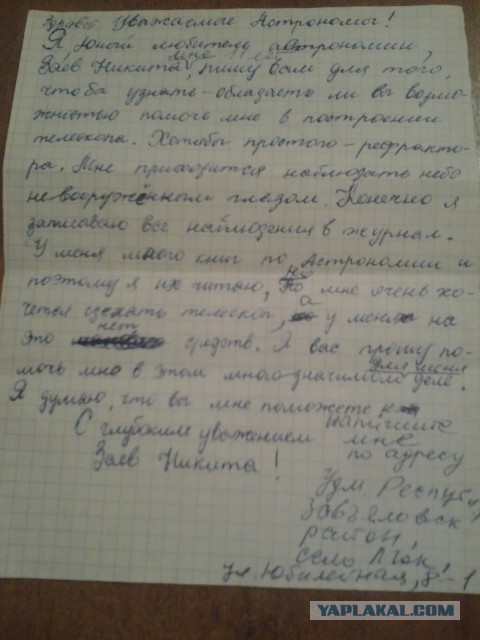 Здравст. Уважаемые Астрономы!
Я Юный любитель астрономии,
Заев Никита, мне
пишу вам для того,
чтобы узнать - обладаете ли вы возмо-
жностью помочь мне в построении
телескопа. Хотябы простого - рефракто-
ра. Мне приходится наблюдать небо
невооружённым глазом. Конечно я
записываю все наблюдения в журнал.
У меня много книг по Астрономии и
но
поэтому я их читаю, мне очень хо-
а
чется сделать телескоп, у меня на
нет
это средств. Я вас прошу по-
для меня
мочь мне в этом многозначимом деле.
Я думаю, что вы мне поможете
С глубоким уважением напишите
мне
Заев Никита! по адресу
Удм. Республ
Завьяловск
район,
село Люк,
ул. Юбилейная, 8-1
YAPLAKAL.COM